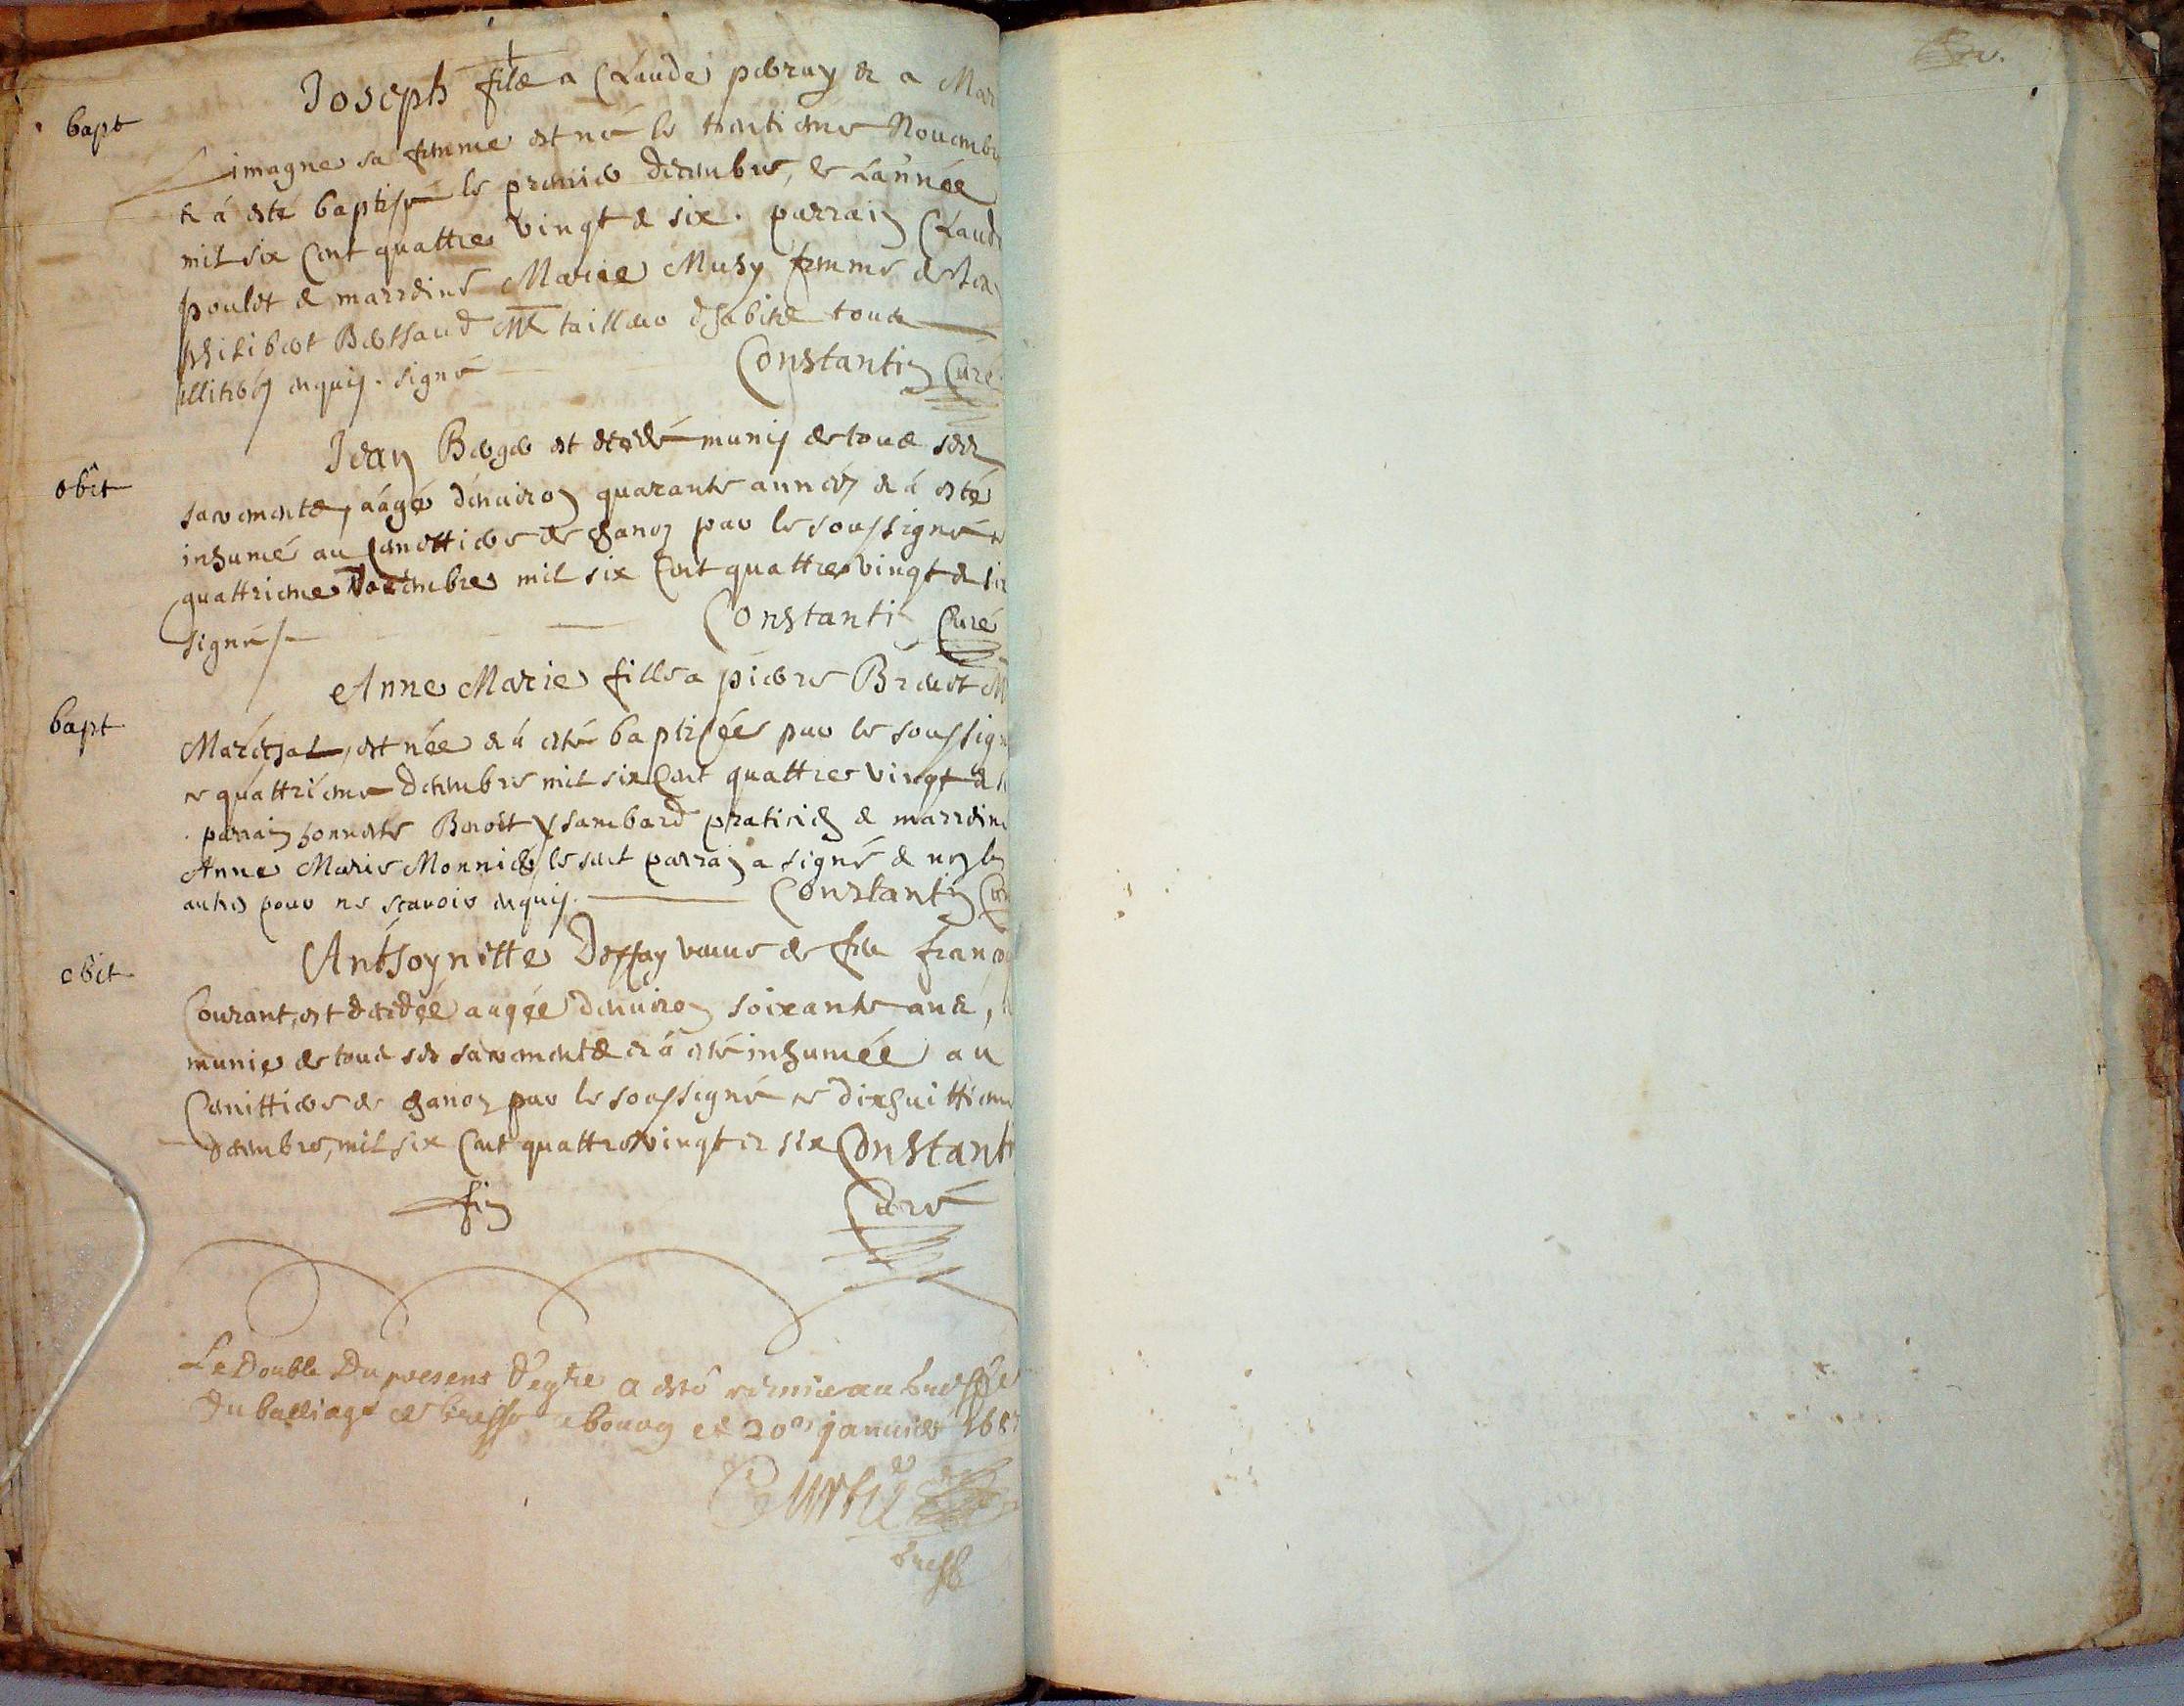 bapt
Joseph fils a Claude perray & a Mar
Limagne sa femme est né le trentieme Novembre
& á esté baptisé le premier decembre, de L'année
mil six Cent quattre vingt & six. parrain Claude
poulet & marreine Marie Musy femme de
philibert Berthaud Me tailleur d'habits tous
illitérés enquis. signé Constantin Curé
obit
Jean Berger est decedé muny de tous ses
sacrements, aagé d'environ quarante années & á esté
inhumé au Cemettiere de par le soussigné ce
quattrieme decembre mil six Cent quattre vingt & six
signé Constantin Curé
bapt
Anne Marie fille a pierre Brevet M
Maréchal, est née & á esté baptisée par le soussigné
ce quattriéme decembre mil six Cent quattre vingt &
parrain honneste Benoit praticien & marreine
Anne Marie Monnier, le sieur parrain a signé & non les
autres pour ne scavoir enquis. Constantin Curé
obit
Anthoynette veuve de feu françois
Courant, est decedée aagée d'environ soixante ans,
munie de tous ses sacrements & á esté inhumée au
Cemittiere de par le soussigné ce dixhuittieme
decembre, mil six Cent quattre vingt & six Constantin
fin Curé
Le Double Du present Regtre a esté remis au greffe
Du bailliage de bresse a bourg ce 20e janvier 1687